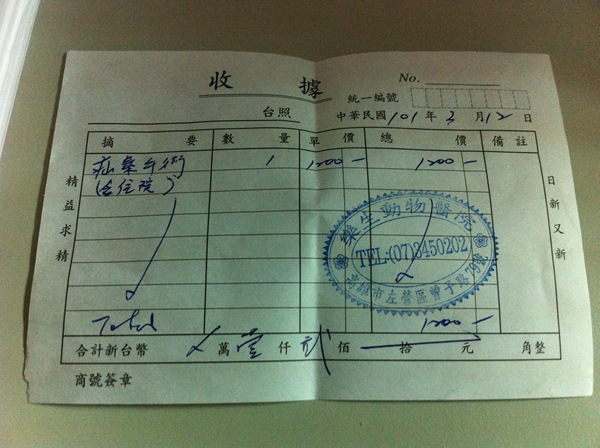 收據
No.
統一編號
台照
中華民國101年3月12日
摘要 數量 單價 總價 備註
疝氣手術 1 1200- 1200-
(含住院)
精益求精
日新又新
樂生動物醫院
TEL:(07)3450202
高雄市左營區曾子路79號
Total 1200-
合計新台幣 萬壹仟貳佰 拾 元 角整
商號簽章